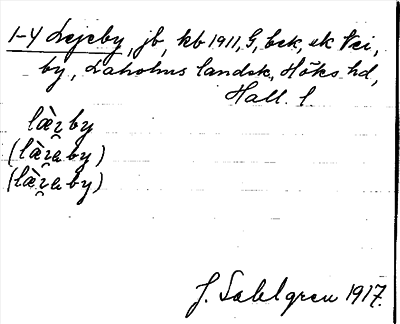 1-4 Lejeby, jb, kb 1911, G, bek, ek Vei,
by, Laholms landsk, Höks hd,
Hall. l
læ̀ꭋby
(læ̀ꭋa by)
(læ̀ꭋa by)
J. Sahlgren 1917.